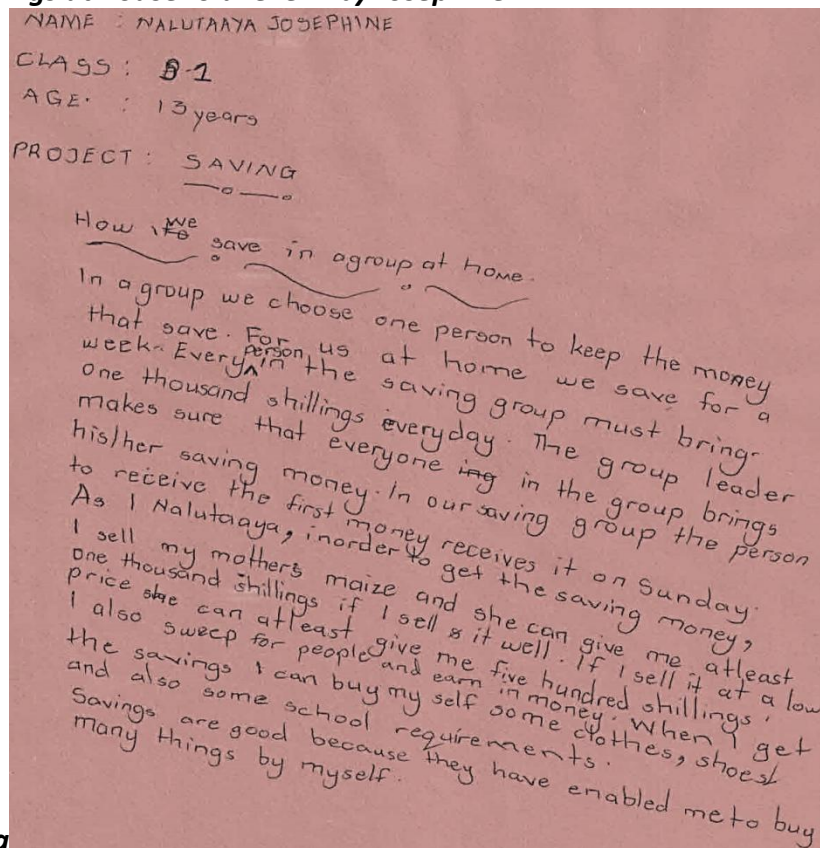 NAME : NALUTAAYA JOSEPHINE
CLASS : S.1
AGE. : 13 years
PROJECT : SAVING
How we save in agroup at home.
In a group we choose one person to keep the money
that save. For us at home we save for a
week. Every person in the saving group must bring
one thousand shillings everyday. The group leader
makes sure that everyone in the group brings
his/her saving money. In our saving group the person
to receive the first money receives it on Sunday.
As I Nalutaaya, inorder to get the saving money,
I sell my mothers maize and she can give me atleast
one thousand shillings if I sell it well. If I sell it at a low
price she can atleast give me five hundred shillings.
I also sweep for people and earn in money. When I get
the savings I can buy my self some clothes, shoes
and also some school requirements.
Savings are good because they have enabled me to buy
many things by myself.